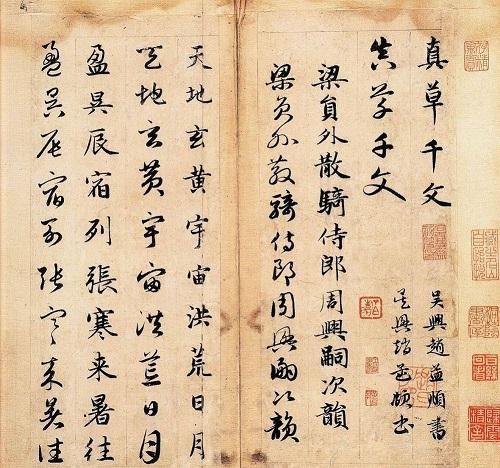 真草千文
真草千文
吴興趙孟頫書
吴興趙孟頫書
梁員外散騎侍郎周興嗣次韻
梁員外散騎侍郎周興嗣次韻
天地玄黃宇宙洪荒日月
天地玄黃宇宙洪荒日月
盈昃辰宿列張寒来暑往
盈昃辰宿列張寒来暑往